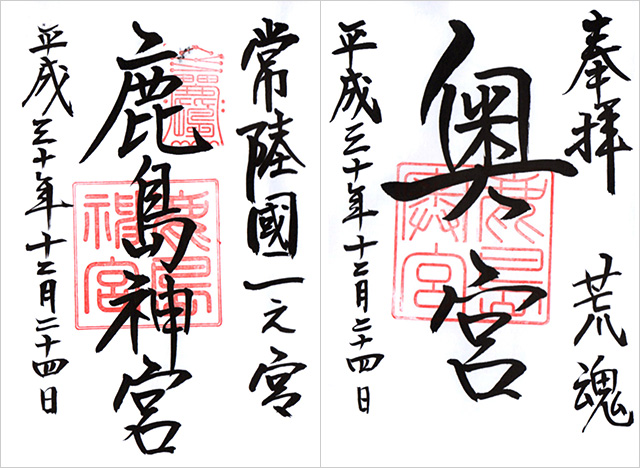 奉拝 荒魂
奥宮
平成三十年十二月二十四日
常陸國一之宮
鹿島神宮
平成三十年十二月二十四日
鹿島神宮